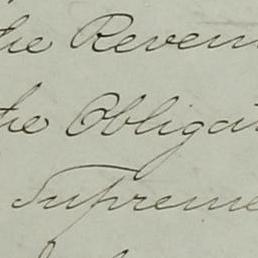 the Reven
the Obligat
Supreme